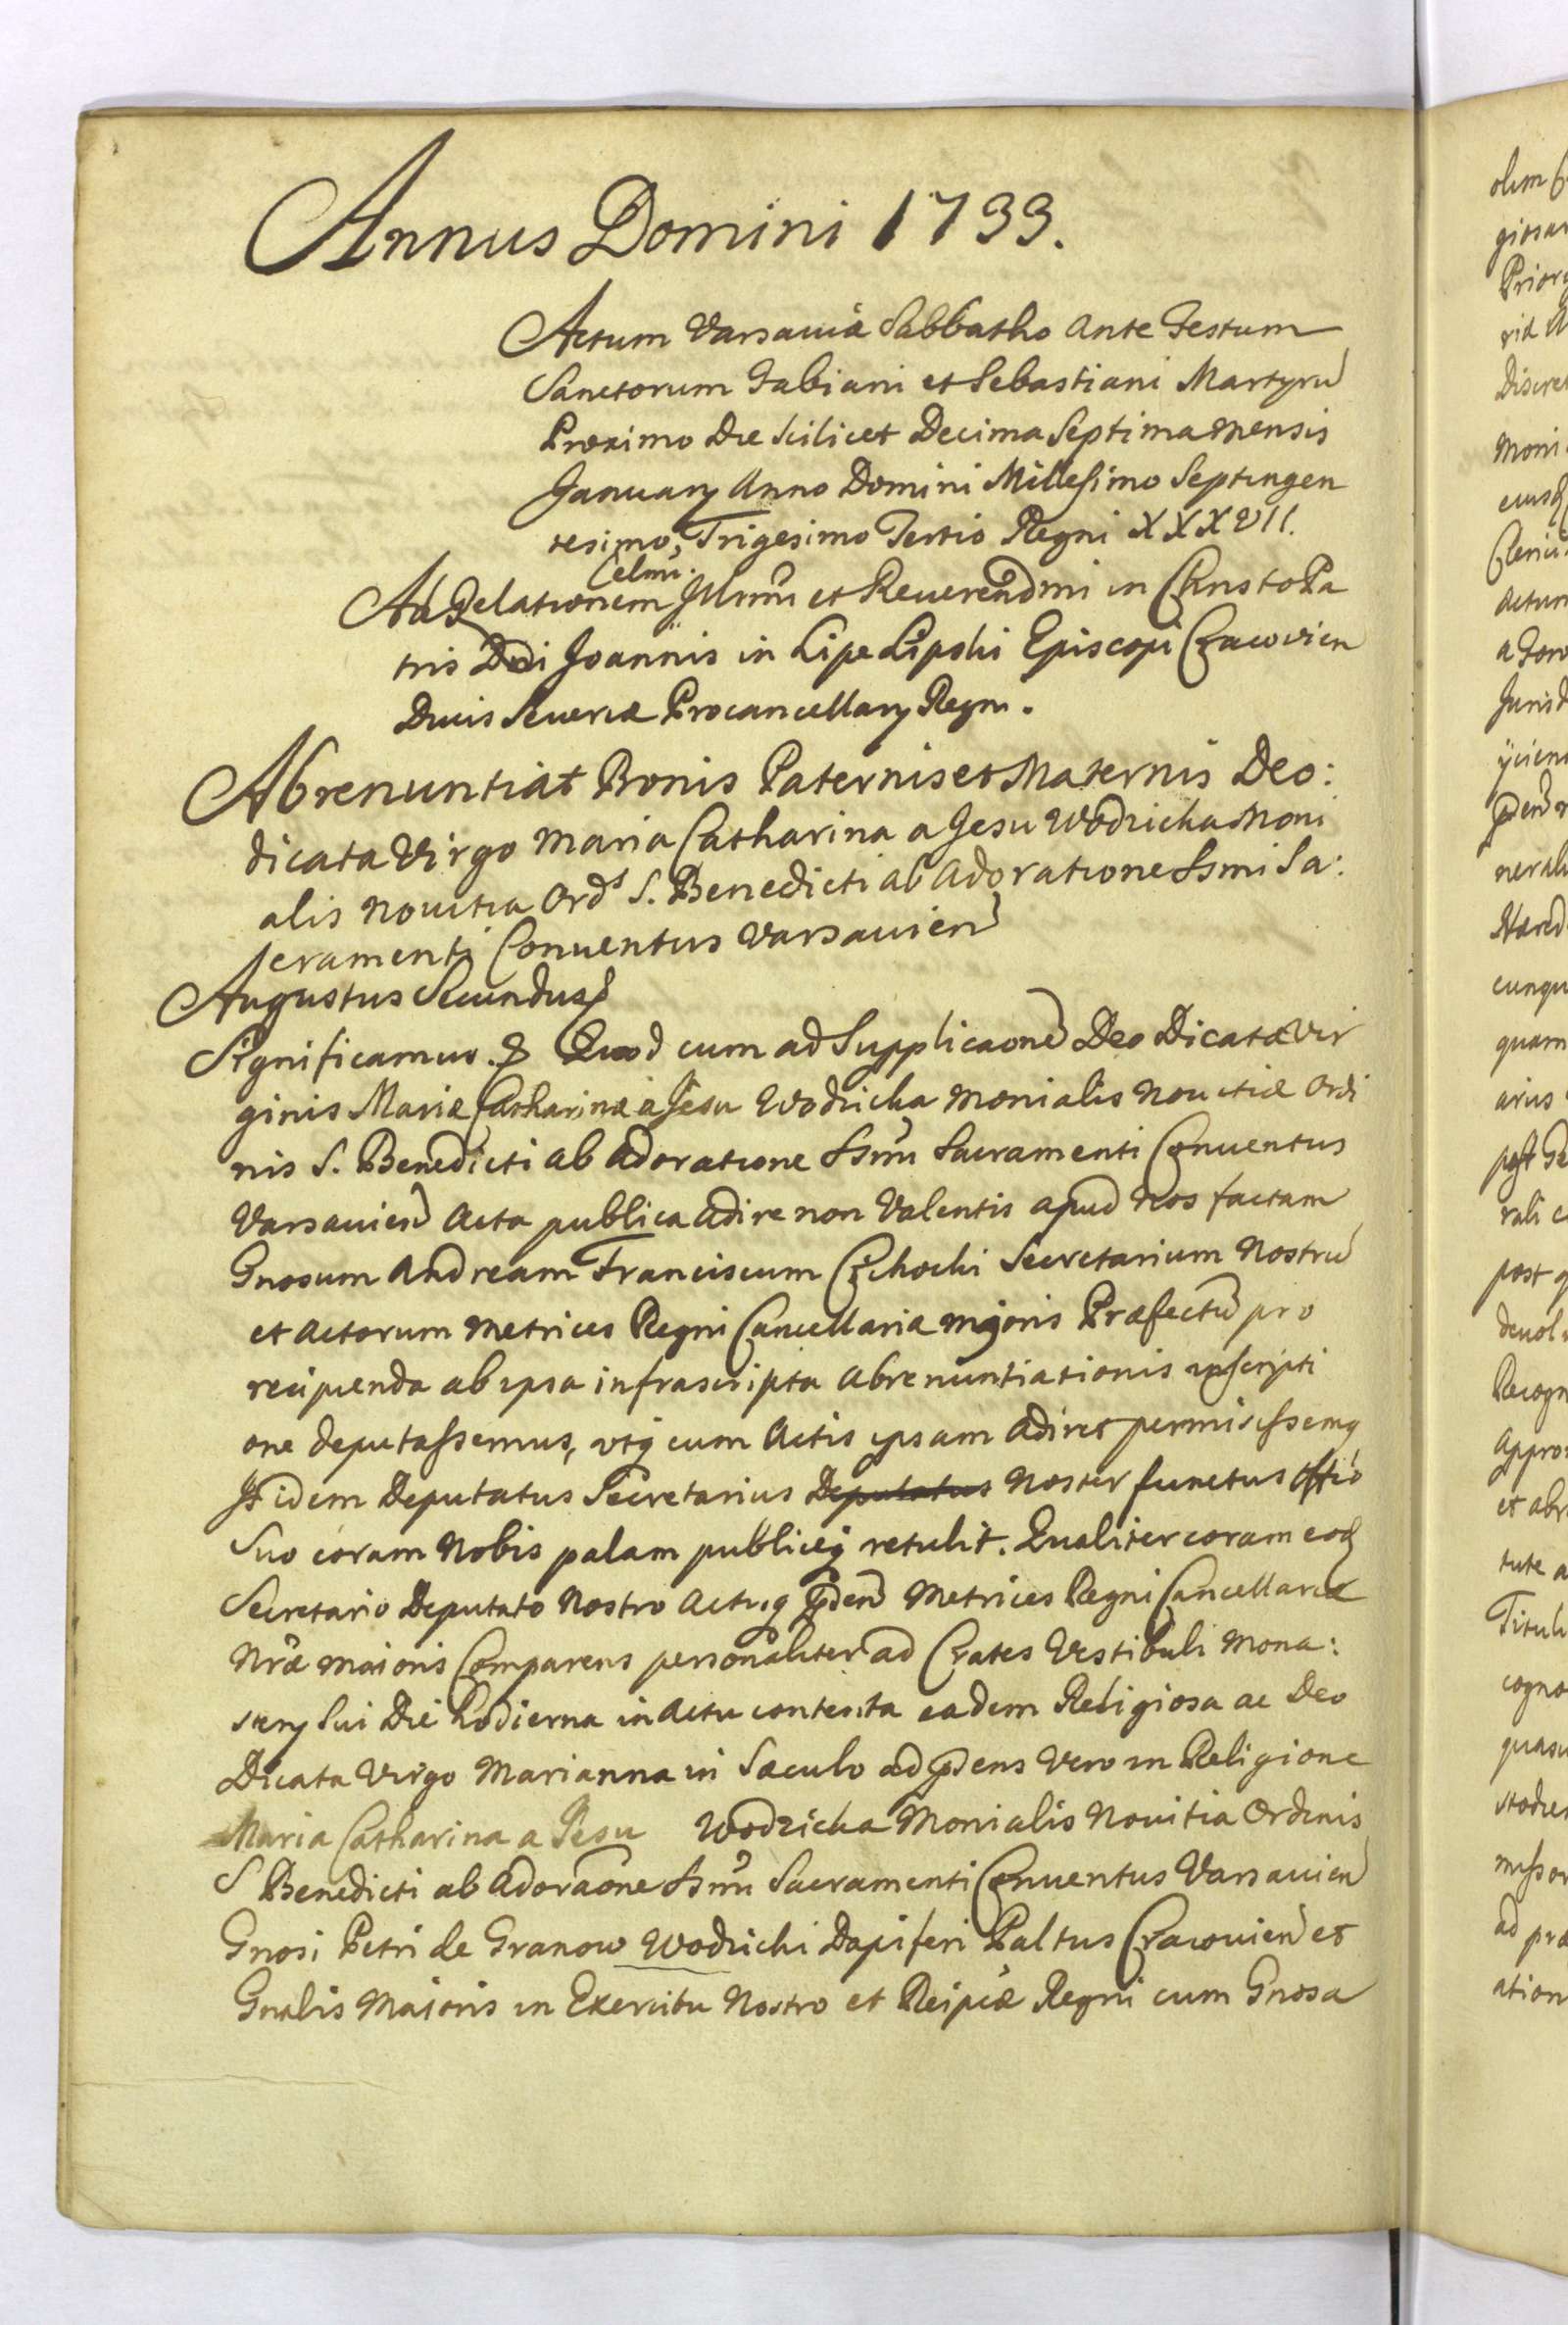 Annus Domini 1733.
Actum Varsaviæ Sabbatho Ante Festum
Sanctorum Fabiani et Sebastiani Martyrũ
Proximo Die Scilicet Decima Septima Mensis
January Anno Domini Millesimo Septingen
tesimo, Trigesimo Tertio Regni XXXVII.
Celmi.
Ad Relationem Illmi et Reverendmi in Christo Pa
tris Dni Joannis in Lipe Lipski Episcopi Cracovien
Ducis Severiæ Procancellary Regni.
Abrenuntiat Bonis Paternis et Maternis Deo:
dicata Virgo Maria Catharina a Jesu Wodzicka Moni
alis Novitia Ords S. Benedicti ab Adoratione Ssmi Sa:
cramenti Conventus Varsavien
Augustus Secundus
Significamus. Quod cum ad Supplicaone Deo Dicatæ Vir
ginis Mariæ Catharinæ a Jesu Wodzicka Monialis Novitiæ Ordi
nis S. Benedicti ab Adoratione Ssmi Sacramenti Conventus
Varsavien Acta publica adire non Valentis apud Nos factam
Gnosum Andream Franciscum Cichocki Secretarium Nostrũ
et Actorum Metrices Regni Cancellariæ majoris Præfectũ pro
recipienda ab ipsa infrascripta Abrenuntiationis inscripti
one deputassemus, utq cum Actis ipsam adiret permisissemq
Is idem Deputatus Secretarius Deputatus Noster functus offio
Suo coram Nobis palam publiceq retulit. Qualiter coram eod
Secretario Deputato Nostro Actisq pden Metrices Regni Cancellariæ
Nræ maioris Comparens personaliter ad Crates Vestibuli Mona:
stery sui Die hodierna in Actu contenta eadem Religiosa ac Deo
Dicata Virgo Marianna in Sæculo ad pdens Vero in Religione
Maria Catharina a Jesu Wodzicka Monialis Novitia Ordinis
S Benedicti ab Adoraone Ssmi Sacramenti Conventus Varsavien
Gnosi Petri de Granow Wodzicki Dapiferi Paltus Cracovien et
Gnalis Maioris in Exercitu Nostro et Reipcæ Regni cum Gnosa
olim
giosar
Prior
Discret
moni
Actum
Jurisd
cunqu
quam
arius
post
rali
post
Recogn
Appro
et abr
tute a
Tituli
cogno
ad præ
ation